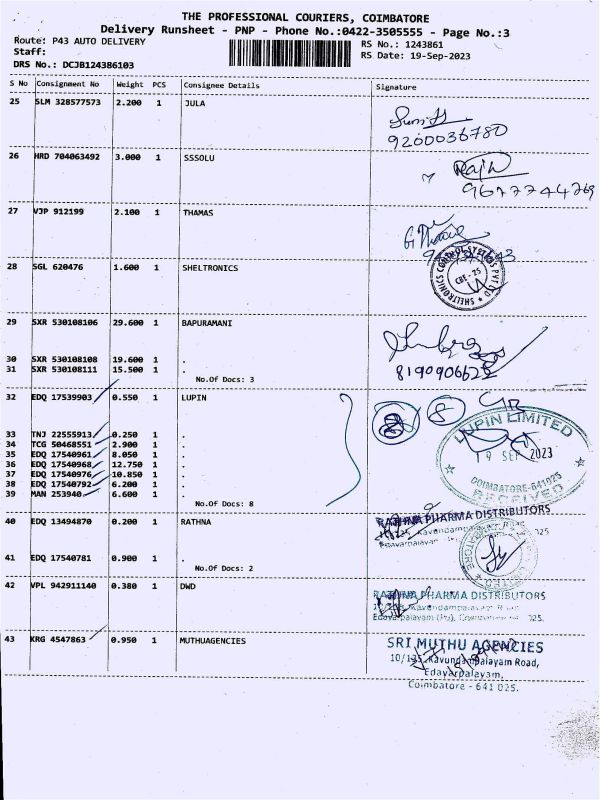 THE PROFESSIONAL COURIERS, COIMBATORE
Delivery Runsheet - PNP - Phone No.:0422-3505555 - Page No.:3
Route: P43 AUTO DELIVERY
RS No.: 1243861
Staff:
RS Date: 19-Sep-2023
DRS No.: DCJB124386103
S No Consignment No Weight PCS Consignee Details Signature
25 SLM 328577573 2.200 1 JULA
9200036780
26 HRD 704063492 3.000 1 SSSOLU
9677744269
27 VJP 912199 2.100 1 THAMAS
28 SGL 620476 1.600 1 SHELTRONICS
SHELTRONICS CONTROL SYSTEMS PVT LTD
CBE - 25
29 SXR 530108106 29.600 1 BAPURAMANI
30 SXR 530108108 19.600 1 .
31 SXR 530108111 15.500 1 .
8190906628
No.Of Docs: 3
32 EDQ 17539903 0.550 1 LUPIN
8 8
LUPIN LIMITED
19 SEP 2023
COIMBATORE-641025
RECEIVED
33 TNJ 22555913 0.250 1 .
34 TCG 50468551 2.900 1 .
35 EDQ 17540961 8.050 1 .
36 EDQ 17540968 12.750 1 .
37 EDQ 17540976 10.850 1 .
38 EDQ 17540792 6.200 1 .
39 MAN 253940 6.600 1 .
No.Of Docs: 8
40 EDQ 13494870 0.200 1 RATHNA
RATHNA PHARMA DISTRIBUTORS
41 EDQ 17540781 0.900 1 .
No.Of Docs: 2
42 VPL 942911140 0.380 1 DWD
RATHNA PHARMA DISTRIBUTORS
43 KRG 4547863 0.950 1 MUTHUAGENCIES
SRI MUTHU AGENCIES
10/135, Kavundampalayam Road,
Edayarpalayam,
Coimbatore - 641 025.